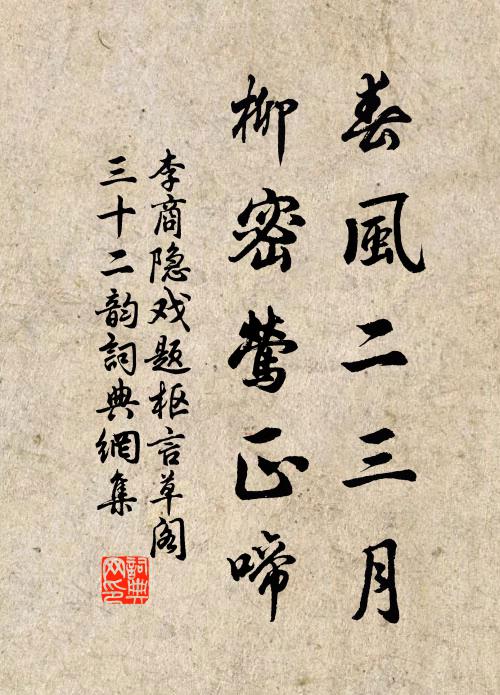 春風二三月
柳密鶯正啼
李商隐戏题枢言草阁
三十二韵詞典網集
詞典網印